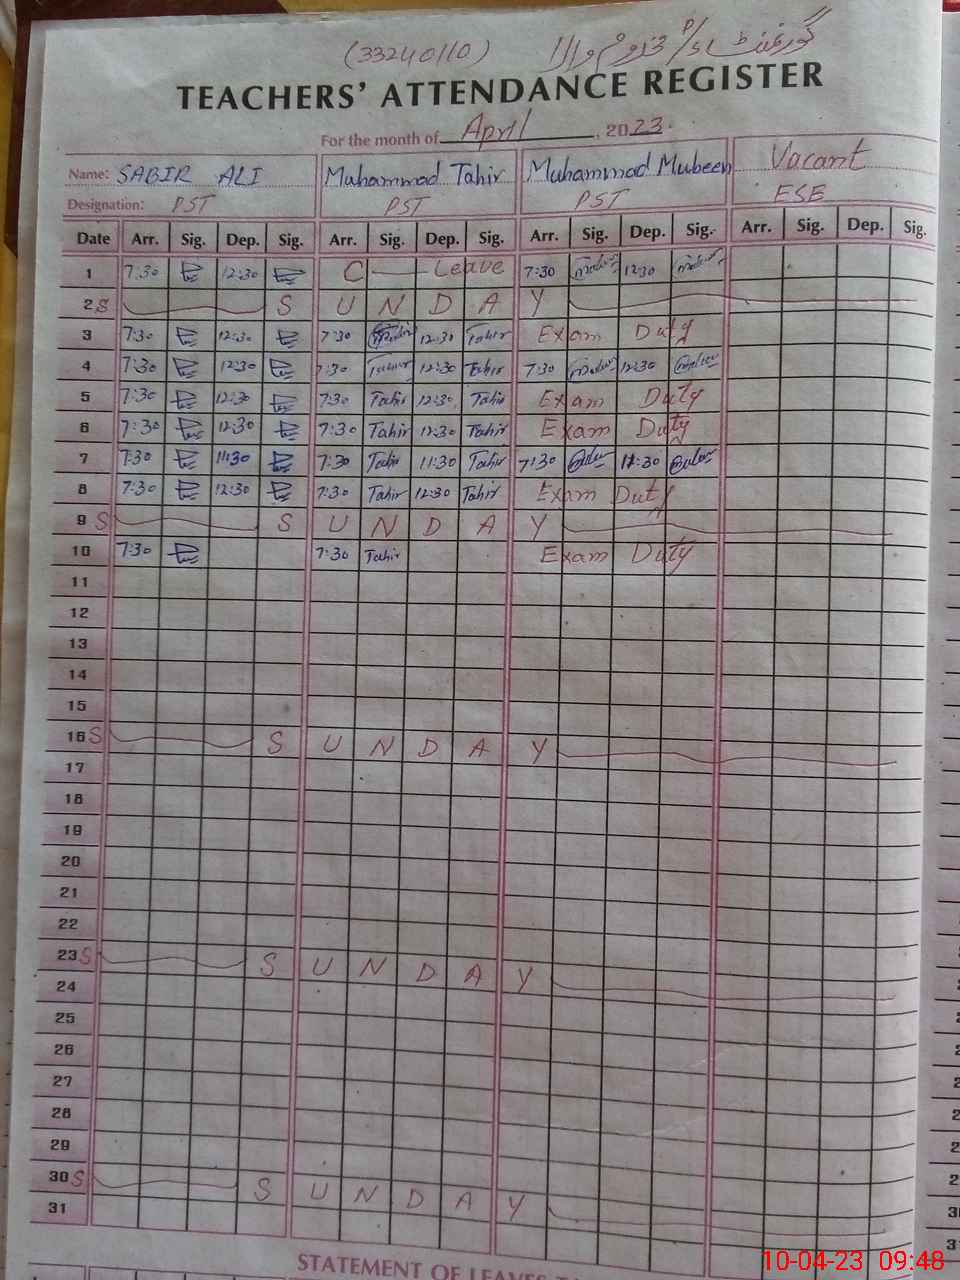 (33240110) گورنمنٹ P/S مخدوم والا
TEACHERS' ATTENDANCE REGISTER
For the month of April, 2023.
Name: SABIR ALI Muhammad Tahir Muhammad Mubeen Vacant
Designation: PST PST PST ESE
Date Arr. Sig. Dep. Sig. Arr. Sig. Dep. Sig. Arr. Sig. Dep. Sig. Arr. Sig. Dep. Sig.
1 7:30 12:30 C Leave 7:30 12:30
2 S S U N D A Y
3 7:30 12:30 7:30 Tahir 12:30 Tahir Exam Duty
4 7:30 12:30 7:30 Tahir 12:30 Tahir 7:30 12:30
5 7:30 12:30 7:30 Tahir 12:30 Tahir Exam Duty
6 7:30 12:30 7:30 Tahir 12:30 Tahir Exam Duty
7 7:30 11:30 7:30 Tahir 11:30 Tahir 7:30 11:30
8 7:30 12:30 7:30 Tahir 12:30 Tahir Exam Duty
9 S S U N D A Y
10 7:30 7:30 Tahir Exam Duty
11
12
13
14
15
16 S S U N D A Y
17
18
19
20
21
22
23 S S U N D A Y
24
25
26
27
28
29
30 S S U N D A Y
31
STATEMENT OF LEAVES
10-04-23 09:48